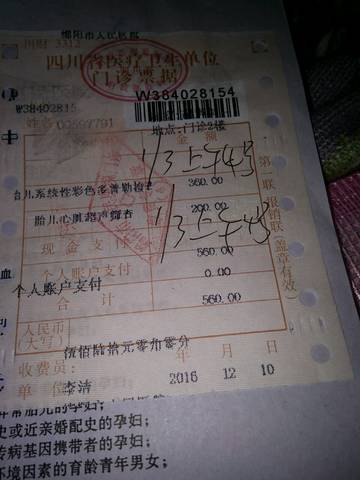 绵阳市人民医院
四川省医疗卫生单位
门诊票据
W384028154
W38402815
姓名 00597791
地点:门诊2楼
金 额
胎儿系统性彩色多普勒检查
360.00
1/3上午4号
胎儿心脏超声筛查
200.00
1/3上午4号
现金支付
560.00
个人账户支付
0.00
个人账户支付
合 计
560.00
人民币
(大写)
伍佰陆拾元零角零分
收费员:
年 月 日
单位
李洁
2016 12 10
第一联 报销联(盖章有效)
史或近亲婚配史的孕妇;
传病基因携带者的孕妇;
环境因素的育龄青年男女;